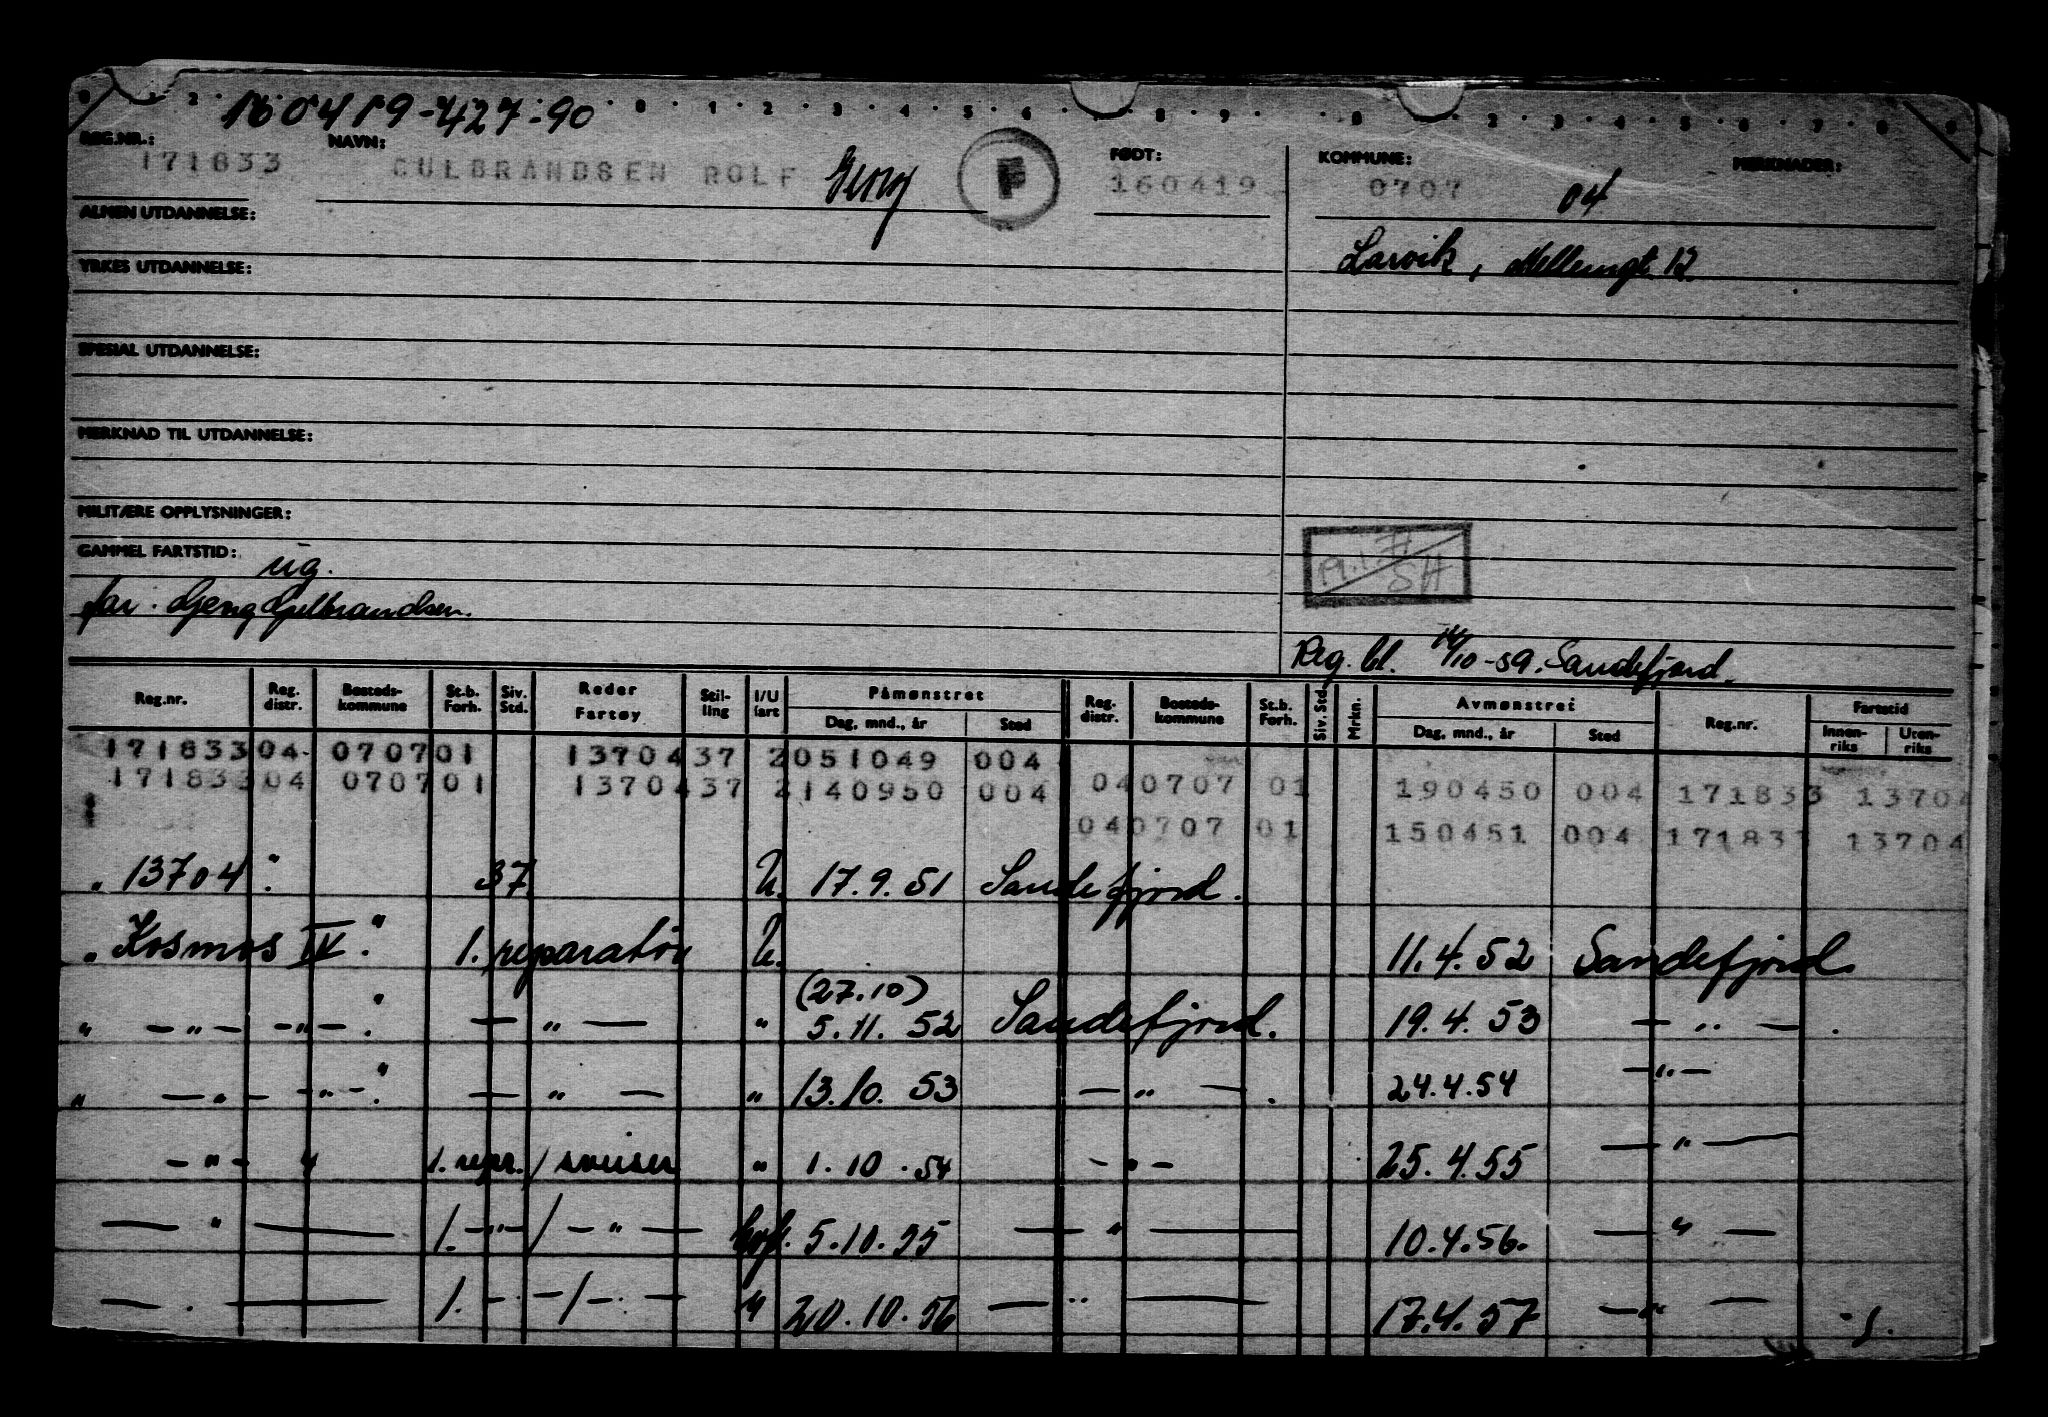 160419-427-90
REG.NR.: NAVN: FØDT: KOMMUNE: MERKNADER:
171833 GULBRANDSEN ROLF Georg F 160419 0707 04
ALMEN UTDANNELSE:
Larvik, Mellemgt. 12
YRKES UTDANNELSE:
SPESIAL UTDANNELSE:
MERKNAD TIL UTDANNELSE:
MILITÆRE OPPLYSNINGER:
GAMMEL FARTSTID: ug.
SH
far: Georg Gulbrandsen.
Reg. bl. 14/10-59. Sandefjord.
Reg.nr. Reg. distr. Bosteds-kommune St.b. Forh. Siv. Std. Reder Fartøy Stil-ling I/U fart Påmønstret Dag, mnd., år Sted Reg. distr. Bosteds-kommune St.b. Forh. Siv. Std Mrkn. Avmønstret Dag, mnd., år Sted Reg.nr. Fartstid Innen-riks Uten-riks
171833 04 0707 01 13704 37 2 051049 004
171833 04 0707 01 13704 37 2 140950 004 04 0707 01 190450 004 171833 13704
04 0707 01 150451 004 171833 13704
" 13704 " 37 U. 17.9.51 Sandefjord.
" Kosmos IV " 1. reparatør U. 11.4.52 Sandefjord.
(27.10)
" -"- -"- " - " - " 5.11.52 Sandefjord. 19.4.53 - " - .
" -"- -"- " - " - " 13.10.53 - " - . 24.4.54 -"-
-"- " 1. repr./ " 1.10.54 -"- 25.4.55 - " -
- " - 1. -"- / -"- hvf. 5.10.55 - " - 10.4.56. - " -
- " - 1. -"- / -"- " 20.10.56 - " - 17.4.57 - " -